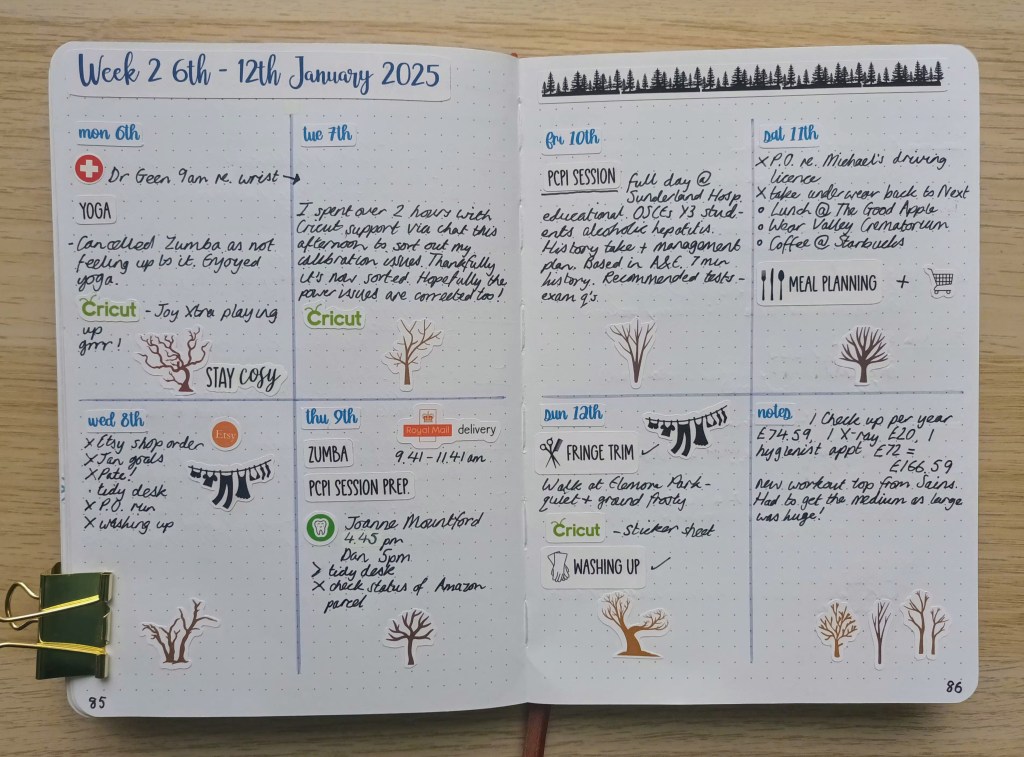 Week 2 6th - 12th January 2025
mon 6th
Dr Geen 9am re. wrist →
YOGA
- Cancelled Zumba as not
feeling up to it. Enjoyed
yoga.
Cricut - Joy Xtra playing
up
grrr!
STAY COSY
tue 7th
I spent over 2 hours with
Cricut support via chat this
afternoon to sort out my
calibration issues. Thankfully
it's now sorted. Hopefully the
power issues are corrected too!
Cricut
wed 8th
x Etsy shop order
Etsy
x Jan goals
x Pate!
· tidy desk
x P.O. run
x washing up
thu 9th
Royal Mail delivery
ZUMBA 9.41 - 11.41 am
PCPI SESSION PREP.
Joanne Mountford
4.45 pm
Dan 5pm
> tidy desk
x check status of Amazon
parcel
85
fri 10th
PCPI SESSION full day @
Sunderland Hosp.
educational OSCEs Y3 stud-
ents alcoholic hepatitis.
History take + management
plan. Based in A&E. 7 min
history. Recommended tests -
exam q's.
sat 11th
x P.O. re. Michael's driving
licence
x take underwear back to Next
o Lunch @ The Good Apple
o Wear Valley Crematorium
o Coffee @ Starbucks
MEAL PLANNING +
sun 12th
FRINGE TRIM ✓
Walk at Elemore Park -
quiet + ground frosty
Cricut - sticker sheet
WASHING UP ✓
notes 1 Check up per year
£74.59, 1 X-ray £20, 1
hygienist appt £72 =
£166.59
new workout top from Sains.
Had to get the medium as large
was huge!
86